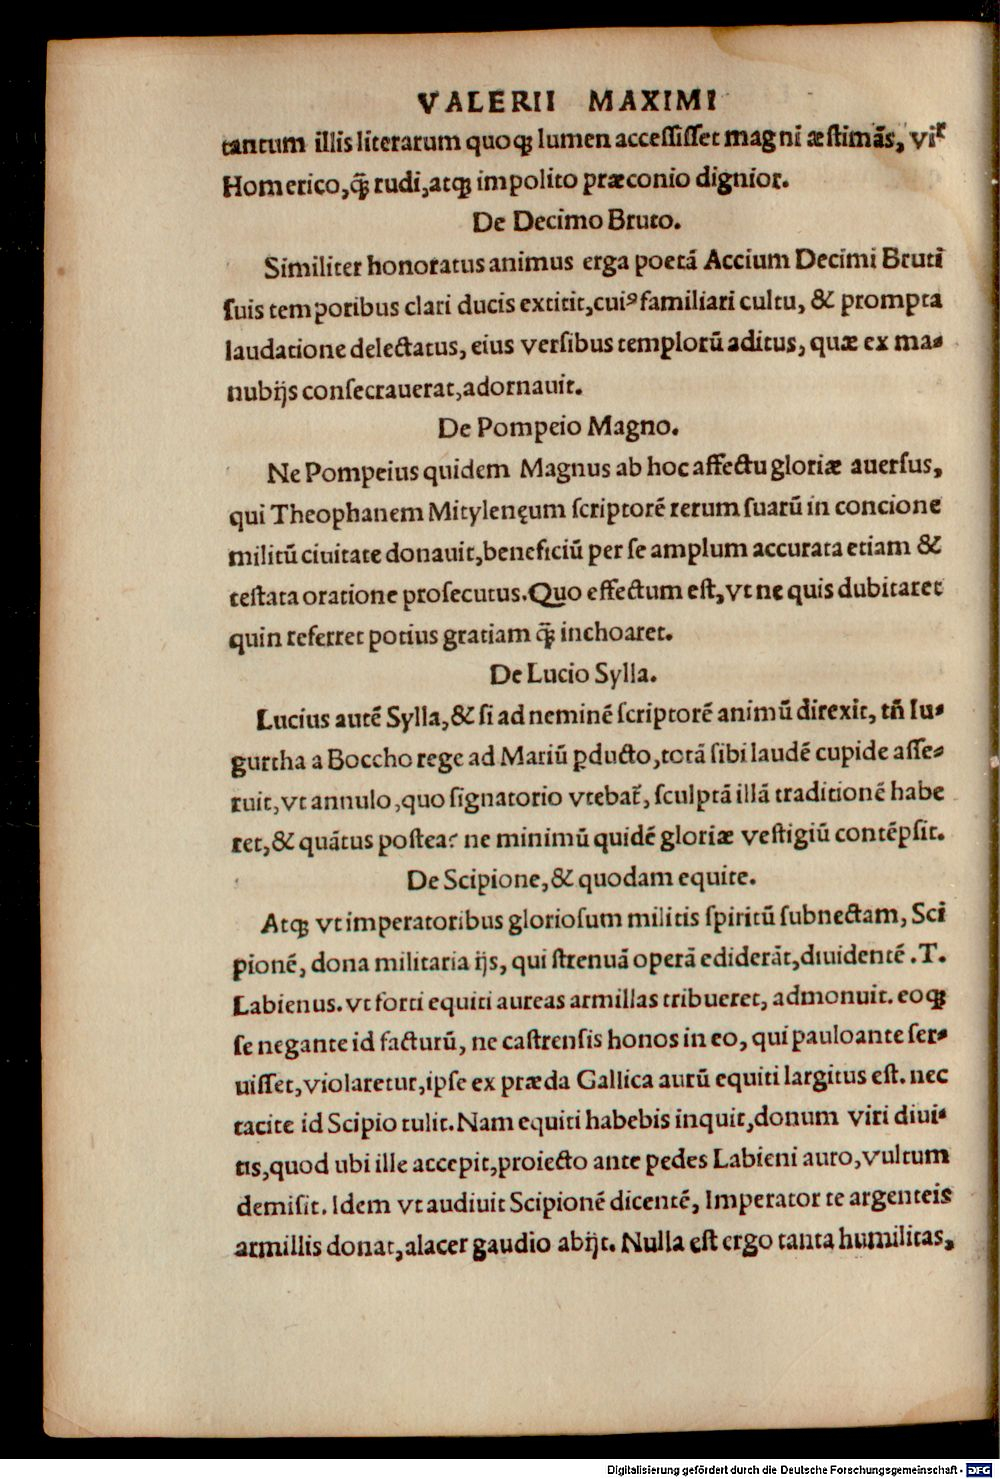 VALERII MAXIMI
tantum illis literarum quoqꝫ lumen acceſſiſſet magni æſtimãs, virͨ
Homerico,q̃ꝫ rudi,atqꝫ impolito præconio dignior.
De Decimo Bruto.
Similiter honoratus animus erga poetã Accium Decimi Bruti
ſuis temporibus clari ducis extitit,cuiꝰ familiari cultu, & prompta
laudatione delectatus, eius verſibus templorũ aditus, quæ ex ma⸗
nubijs conſecrauerat,adornauit.
De Pompeio Magno.
Ne Pompeius quidem Magnus ab hoc affectu gloriæ auerſus,
qui Theophanem Mitylenęum ſcriptorẽ rerum ſuarũ in concione
militũ ciuitate donauit,beneficiũ per ſe amplum accurata etiam &
teſtata oratione proſecutus.Quo effectum eſt, vt ne quis dubitaret
quin referret potius gratiam q̃ꝫ inchoaret.
De Lucio Sylla.
Lucius autẽ Sylla,& ſi ad neminẽ ſcriptorẽ animũ direxit, tñ Iu⸗
gurtha a Boccho rege ad Mariũ ꝑducto,totã ſibi laudẽ cupide aſſe⸗
ruit,vt annulo,quo ſignatorio vtebat᷑, ſculptã illã traditionẽ habe
ret,& quãtus poſtea? ne minimũ quidẽ gloriæ veſtigiũ contẽpſit.
De Scipione,& quodam equite.
Atqꝫ vt imperatoribus glorioſum militis ſpiritũ ſubnectam, Sci
pionẽ, dona militaria ijs, qui ſtrenuã operã ediderãt,diuidentẽ .T.
Labienus. vt forti equiti aureas armillas tribueret, admonuit. eoqꝫ
ſe negante id facturũ, ne caſtrenſis honos in eo, qui pauloante ſer⸗
uiſſet,violaretur,ipſe ex præda Gallica aurũ equiti largitus eſt. nec
tacite id Scipio tulit.Nam equiti habebis inquit,donum viri diui⸗
tis,quod ubi ille accepit,proiecto ante pedes Labieni auro,vultum
demiſit. Idem vt audiuit Scipionẽ dicentẽ, Imperator te argenteis
armillis donat,alacer gaudio abijt. Nulla eſt ergo tanta humilitas,
Digitalisierung gefördert durch die Deutsche Forschungsgemeinschaft - DFG